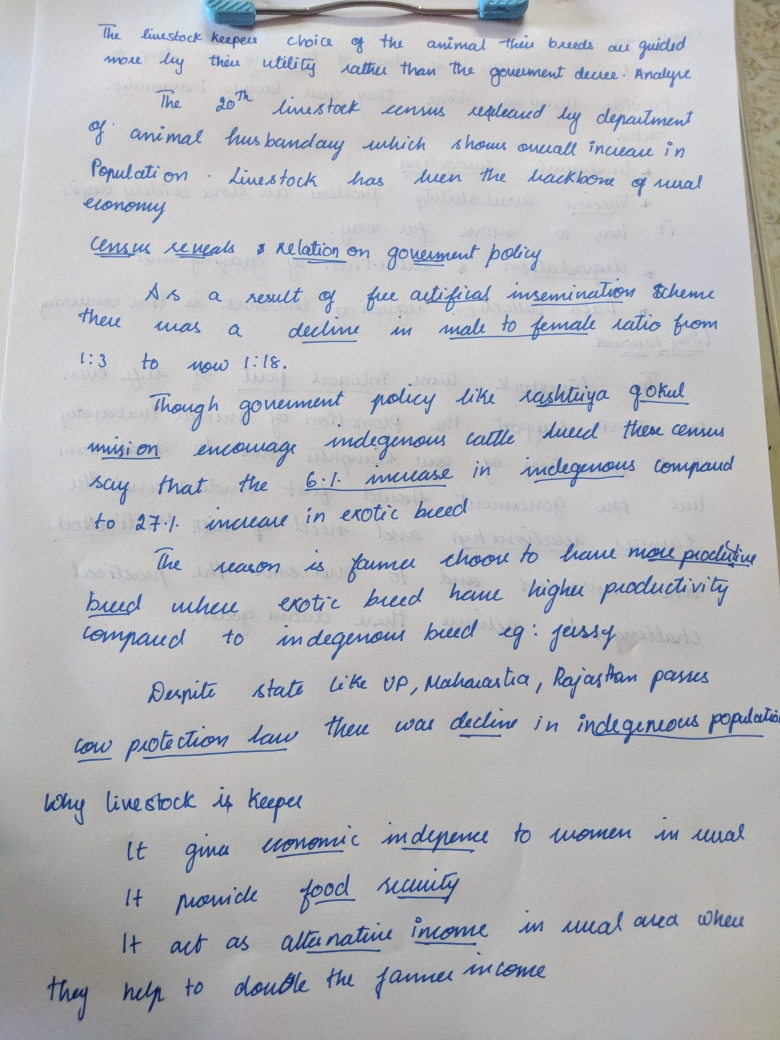 The livestock keepers choice of the animal their breeds are guided
more by their utility rather than the government decree. Analyse
The 20th livestock census released by department
of animal husbandary which shows overall increase in
Population. Livestock has been the backbone of rural
economy
Census reveals & relation on government policy
As a result of free artifical insemination scheme
there was a decline in male to female ratio from
1:3 to now 1:18.
Though government policy like rashtriya gokul
mision encourage indegenous cattle breed these census
say that the 6% increase in indegenous compared
to 27% increase in exotic breed
The reason is farmer choose to have more productive
breed where exotic breed have higher productivity
compared to indegenous breed eg: jerssy
Despite state like UP, Maharastra, Rajasthan passes
cow protection law there was decline in indegeneous population
Why livestock is keeper
It gives economic indepence to women in rural
It provide food security
It act as alternative income in rural area where
they help to double the farmer income